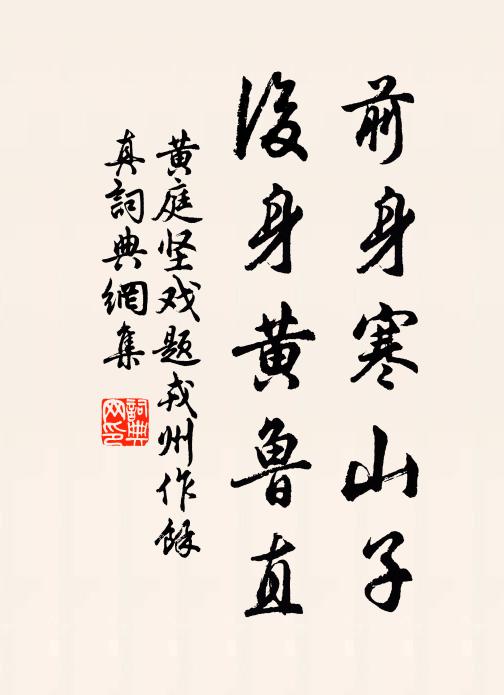 前身寒山子
後身黄魯直
黄庭坚戏题戎州作餘
真詞典網集
詞典
网印